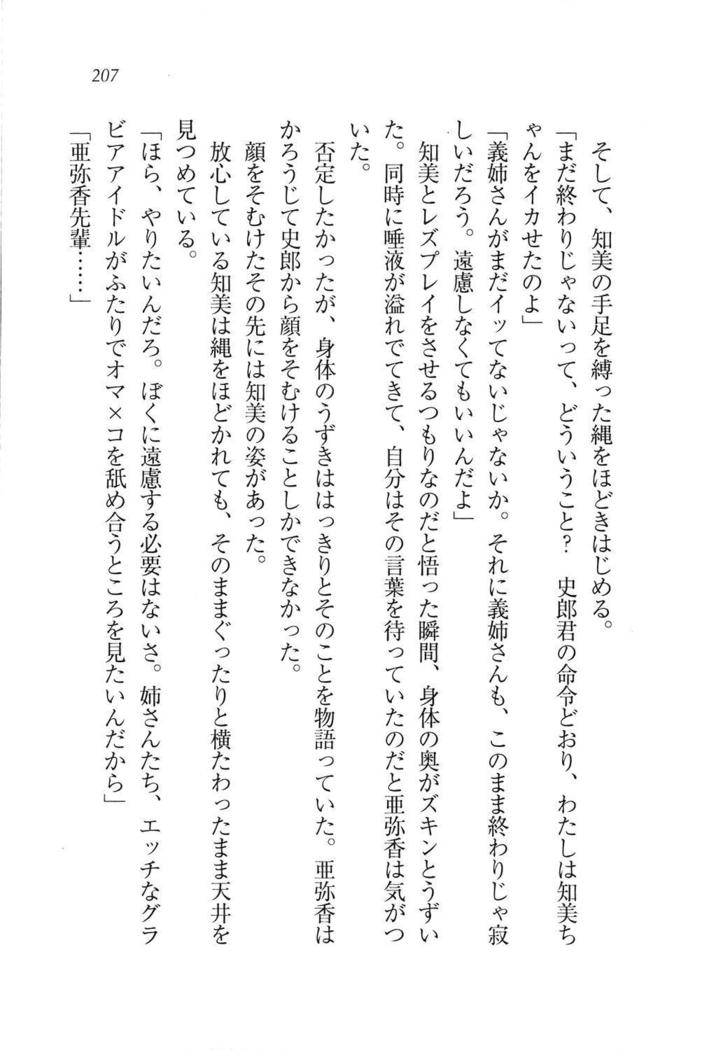 207
そして、知美の手足を縛った縄をほどきはじめる。
「まだ終わりじゃないって、どういうこと？　史郎君の命令どおり、わたしは知美ち
ゃんをイカせたのよ」
「義姉さんがまだイッてないじゃないか。それに義姉さんも、このまま終わりじゃ寂
しいだろう。遠慮しなくてもいいんだよ」
知美とレズプレイをさせるつもりなのだと悟った瞬間、身体の奥がズキンとうずい
た。同時に唾液が溢れでてきて、自分はその言葉を待っていたのだと亜弥香は気がつ
いた。
否定したかったが、身体のうずきははっきりとそのことを物語っていた。亜弥香は
かろうじて史郎から顔をそむけることしかできなかった。
顔をそむけたその先には知美の姿があった。
放心している知美は縄をほどかれても、そのままぐったりと横たわったまま天井を
見つめている。
「ほら、やりたいんだろ。ぼくに遠慮する必要はないさ。姉さんたち、エッチなグラ
ビアアイドルがふたりでオマ×コを舐め合うところを見たいんだから」
「亜弥香先輩……」